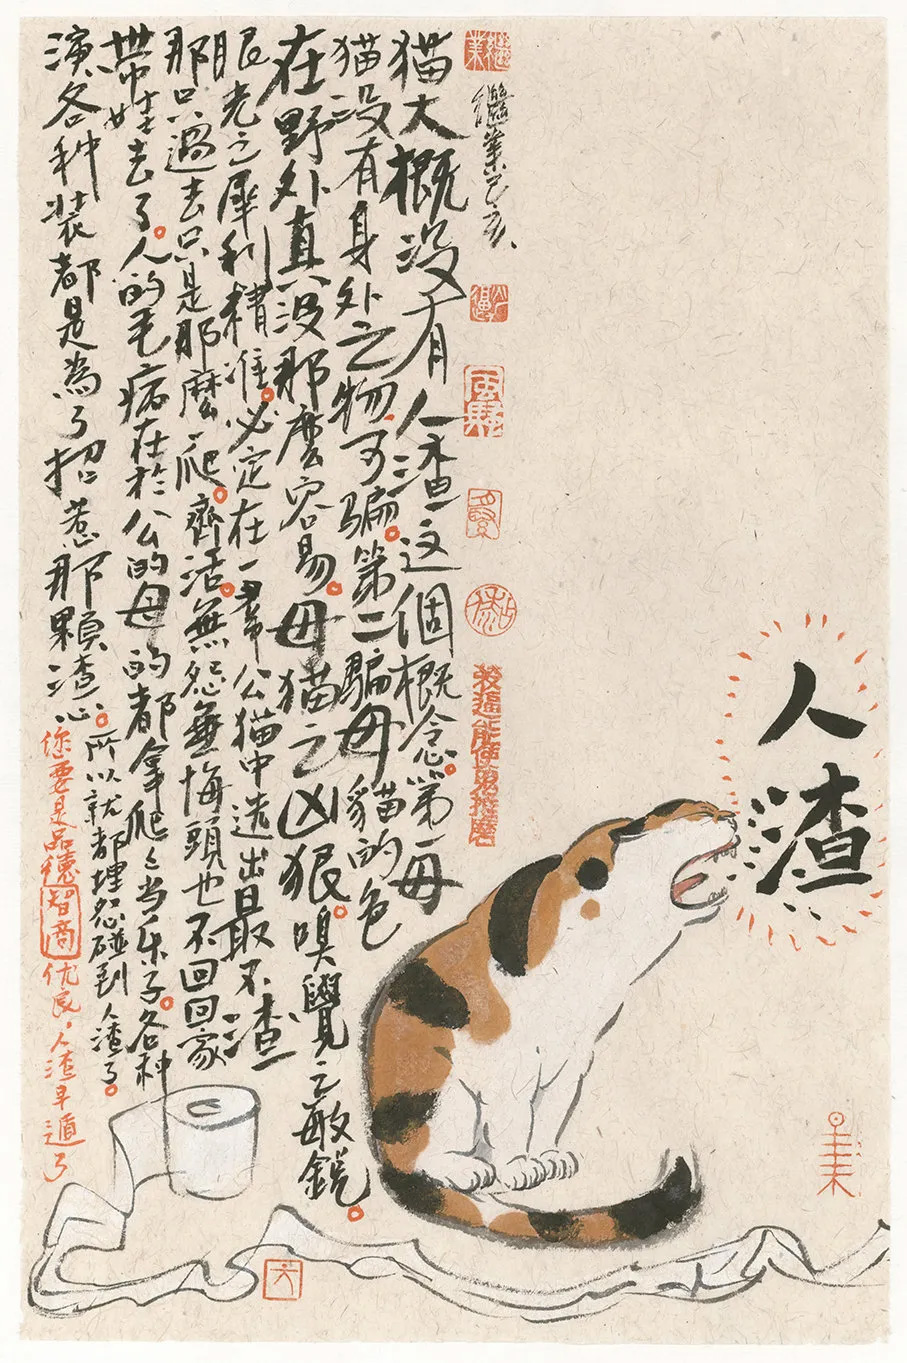 人渣
繼業己亥
猫大概没有人渣这個概念。第一母
猫没有身外之物可騙。第二騙母貓的色
在野外真没那麽容易。母猫之凶狠。嗅覺之敏鋭。
眼光之犀利精准。必定在一羣公猫中选出最不渣
那只過去只是那麽一爬。齊活。無怨無悔頭也不回回家
帶娃去了。人的毛病在於公的母的都拿爬爬当乐子。各种
演各种装都是為了招惹那顆渣心。
所以就都埋怨碰到人渣了。
您要是品德智商优良，人渣早遁了